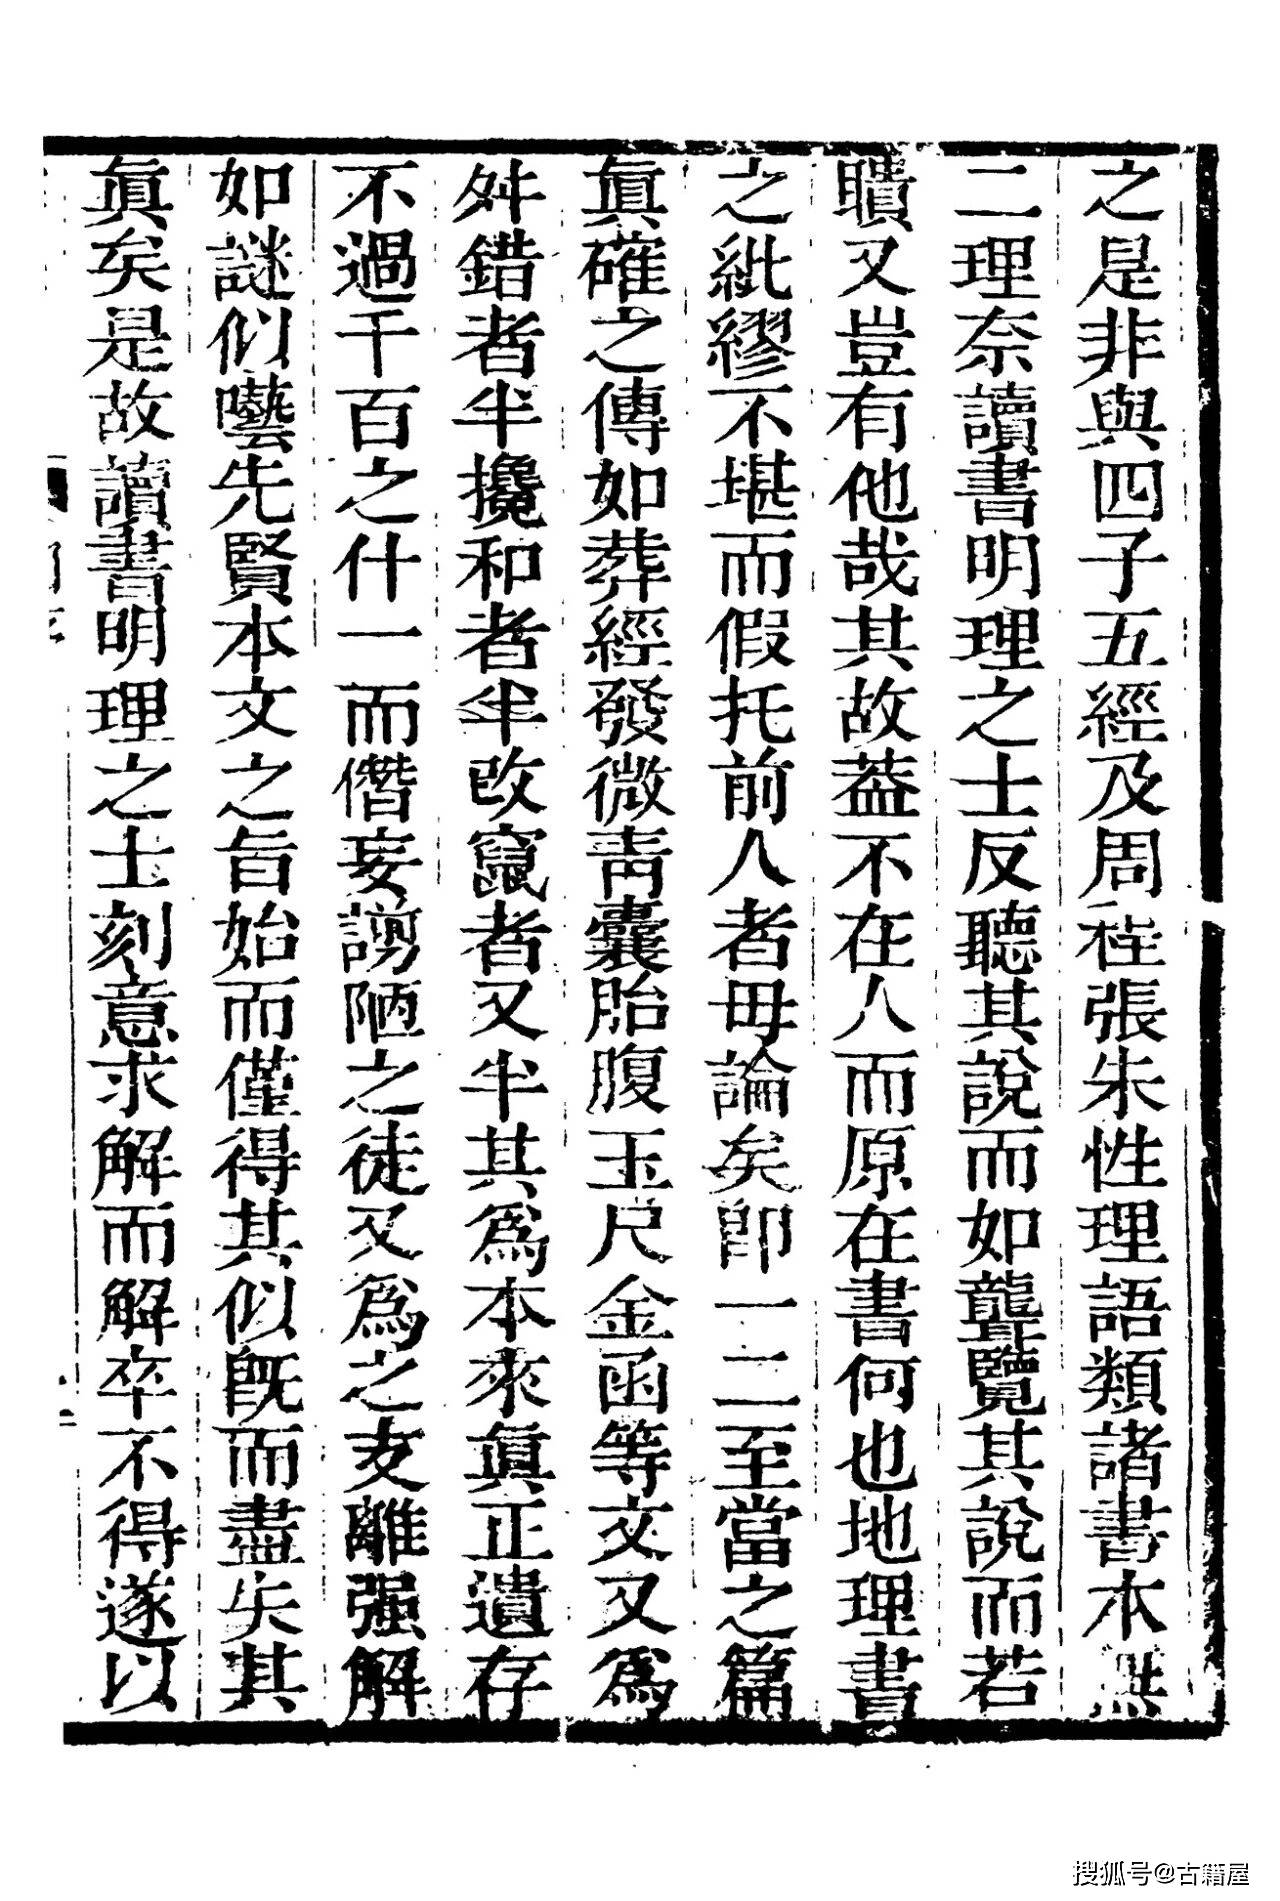 之是非與四子五經及周程張朱性理語類諸書本無
二理奈讀書明理之士反聽其說而如聾覽其說而若
聵又豈有他哉其故葢不在人而原在書何也地理書
之紕繆不堪而假托前人者毋論矣卽一二至當之篇
眞確之傳如葬經發微青囊胎腹玉尺金函等文又爲
舛錯者半攙和者半改竄者又半其爲本來眞正遺存
不過千百之什一而僭妄謭陋之徒又爲之支離强解
如謎似囈先賢本文之旨始而僅得其似旣而盡失其
眞矣是故讀書明理之士刻意求解而解卒不得遂以
搜狐号@古籍屋